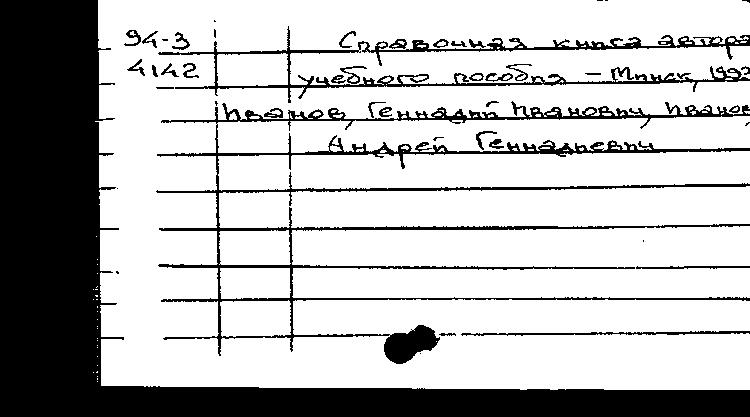 94-3 Справочная книга автора
4142 учебного пособия - Минск, 1993
Иванов, Геннадий Иванович, Иванов,
Андрей Геннадиевич